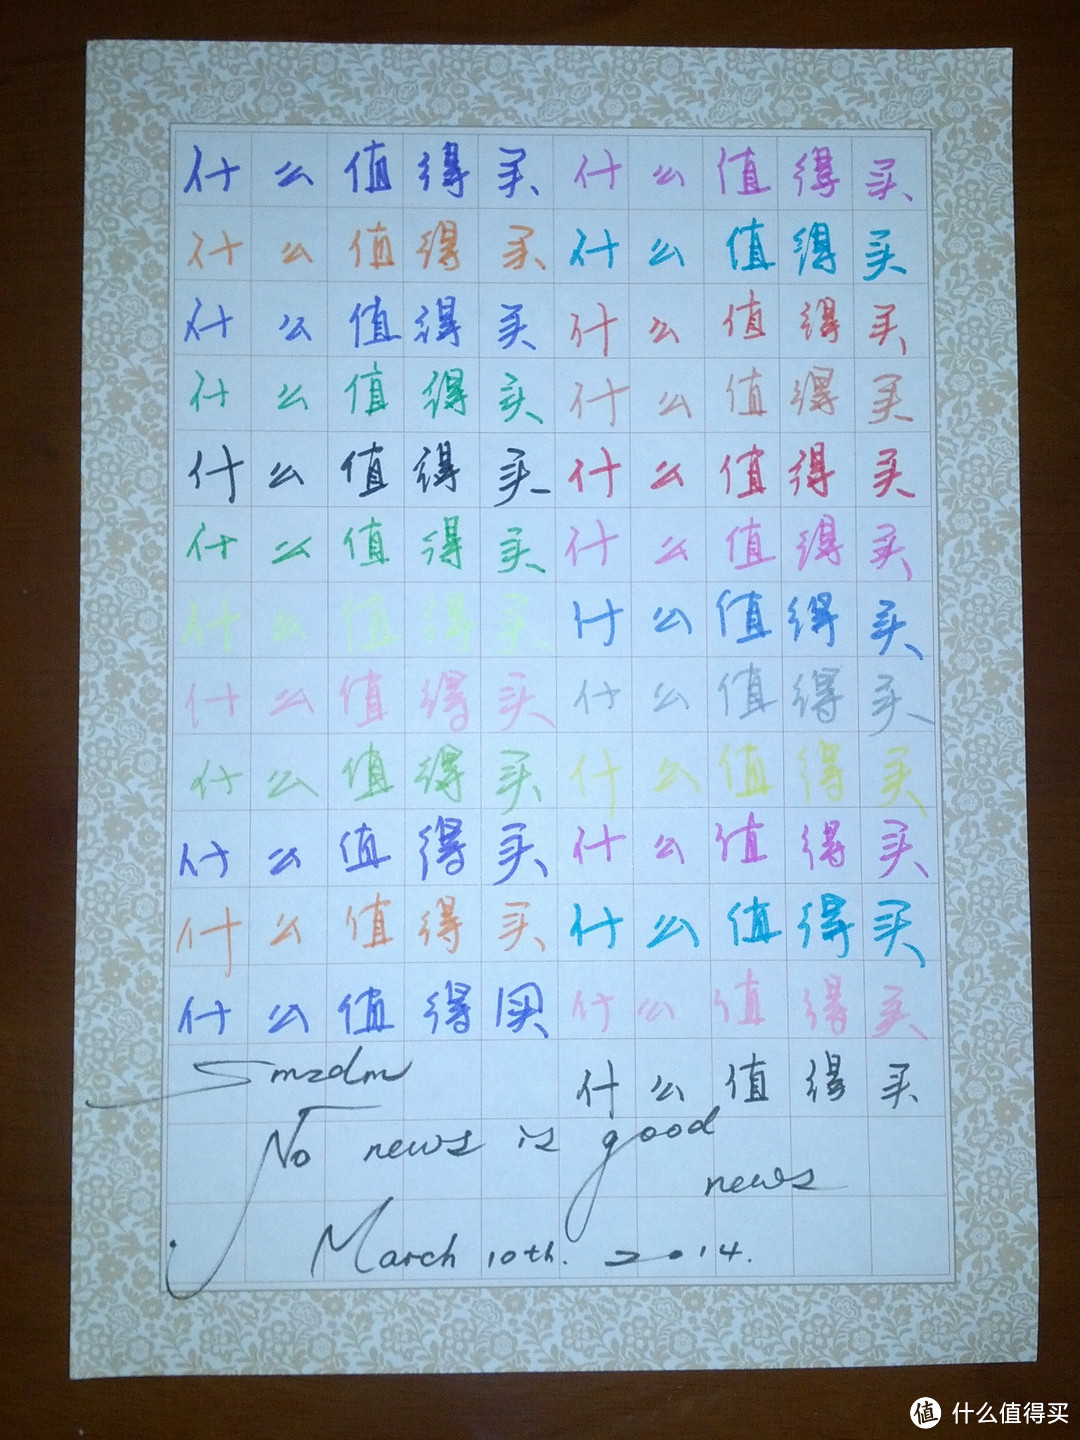 什么值得买什么值得买
什么值得买什么值得买
什么值得买什么值得买
什么值得买什么值得买
什么值得买什么值得买
什么值得买什么值得买
什么值得买什么值得买
什么值得买什么值得买
什么值得买什么值得买
什么值得买什么值得买
什么值得买什么值得买
什么值得买什么值得买
Smzdm 什么值得买
No news is good
news
March 10th. 2014.
值 什么值得买